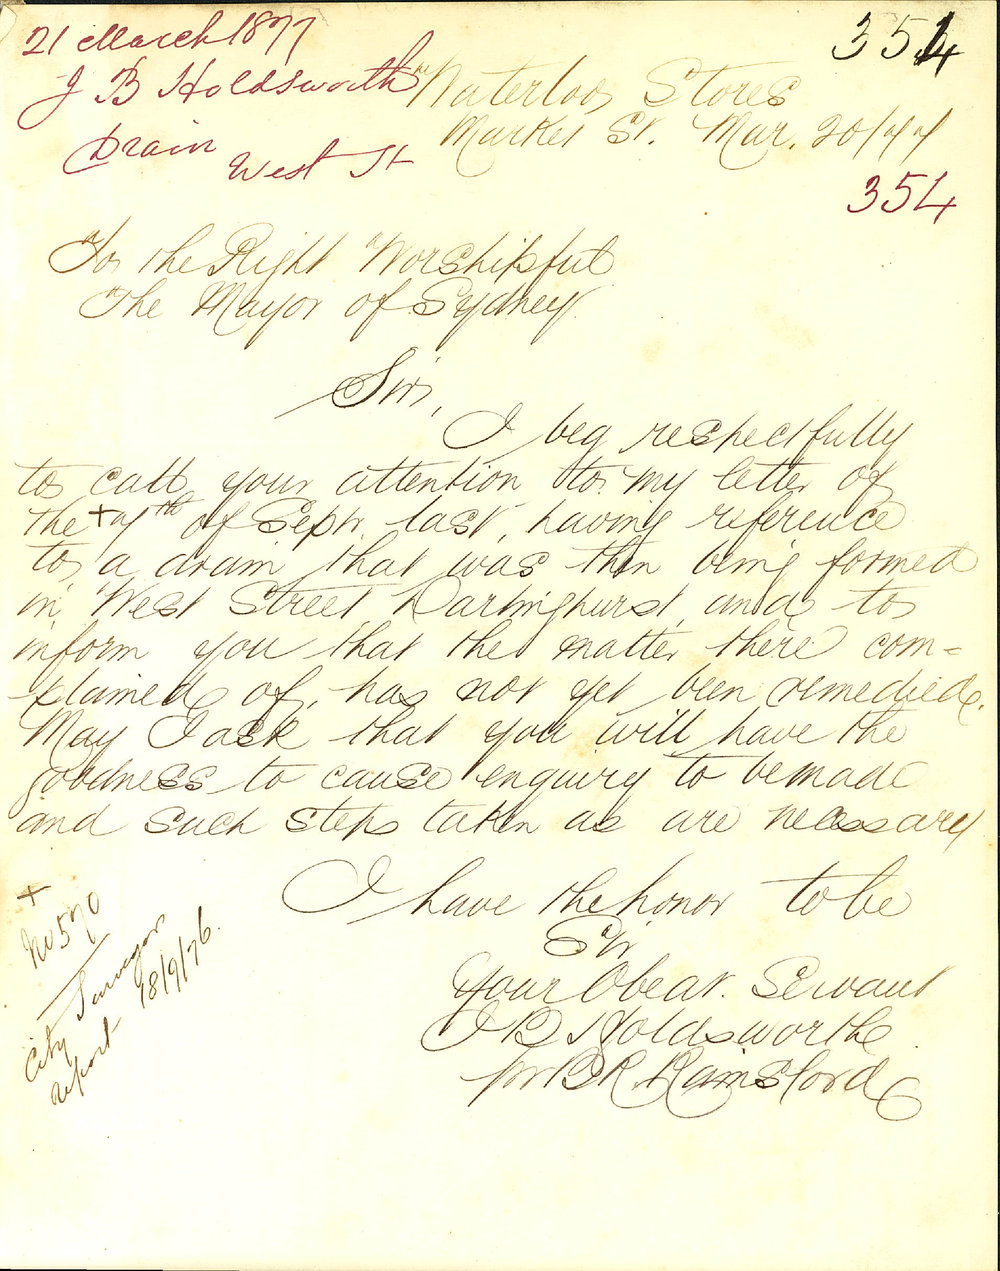 21 March 1877
J B Holdsworth
Drain
West St
354
Waterloo Stores
Market St. Mar. 20/77
354
To the Right Worshipful
The Mayor of Sydney.
Sir,
I beg respectfully
to call your attention to my letter of
the + 7th of Sept. last, having reference
to a drain that was then being formed
in West Street Darlinghurst, and to
inform you that the matter there com=
plained of, has not yet been remedied.
May I ask that you will have the
goodness to cause enquiry to be made
and such steps taken as are necessary
I have the honor to be
Sir
Your Obedt. Servant
J B Holdsworth
pr B R Rainsford
+
No 570
City Surveyor
report 18/9/76.